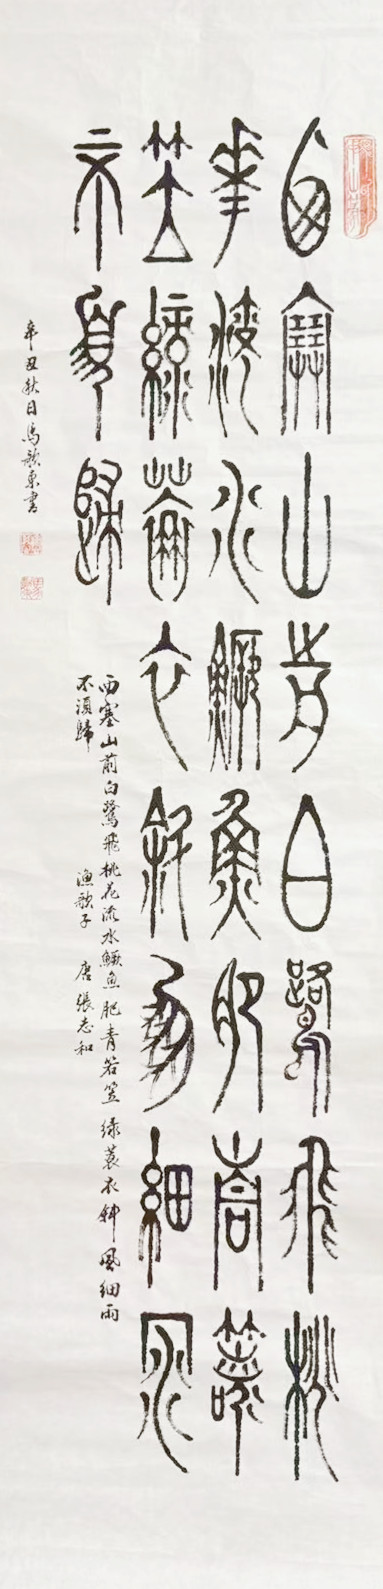 西塞山前白鷺飛桃
華流水鱖魚肥青箬
笠綠蓑衣斜風細雨
不須歸
西塞山前白鷺飛桃花流水鱖魚肥青箬笠綠蓑衣斜風細雨
不須歸 漁歌子 唐張志和
辛丑秋日馬歌東書